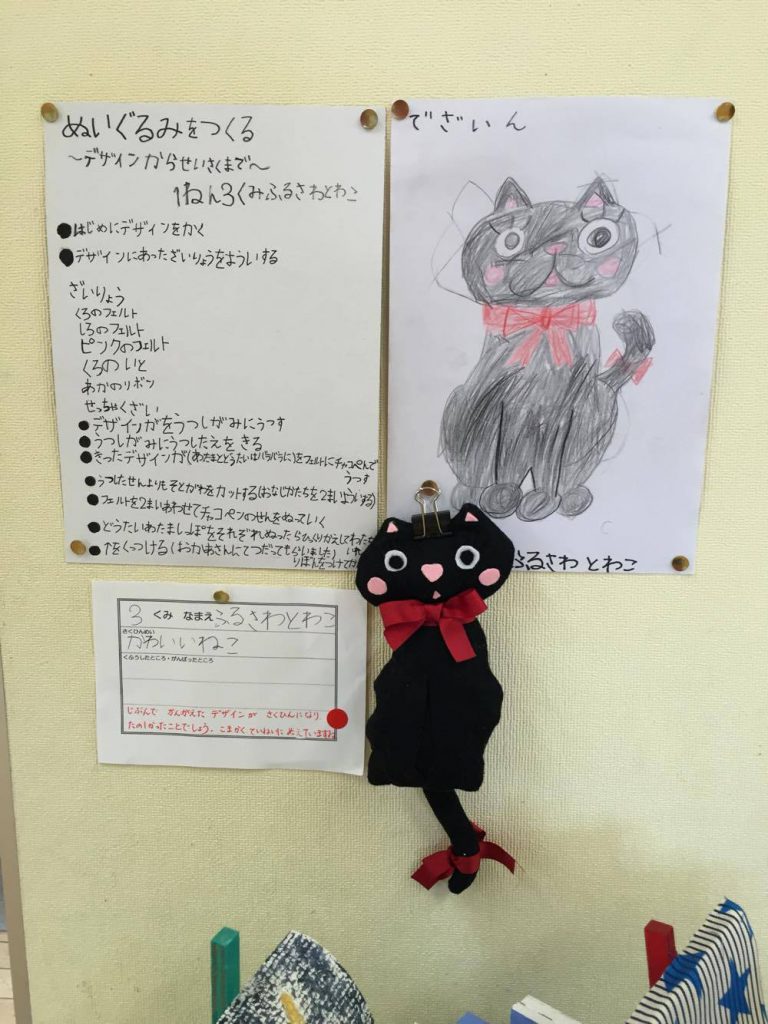 ぬいぐるみをつくる
〜デザインからせいさくまで〜
1ねん3くみふるさわとわこ
●はじめにデザインをかく
●デザインにあったざいりょうをよういする
ざいりょう
くろのフェルト
しろのフェルト
ピンクのフェルト
くろのいと
あかのリボン
せっちゃくざい
●デザインがをうつしがみにうつす
●うつしがみにうつしたえをきる
●きったデザインが(あたまとどうたいはバラバラに)をフェルトにチャコペンで
うつす
●うつしたせんよりもそとがわをカットする(おなじかたちを2まいよういする)
●フェルトを2まいあわせてチャコペンのせんをぬっていく
●どうたいあたましっぽをそれぞれぬったらひっくりかえしてわたを
●↑をくっつける(おかあさんにてつだってもらいました)
りぼんをつけて
でざいん
ふるさわとわこ
3 くみ なまえ ふるさわとわこ
さくひんめい
かわいいねこ
くふうしたところ・がんばったところ
じぶんで かんがえた デザインが さくひんになり
たのしかったことでしょう。こまかくていねいに ぬえていますね